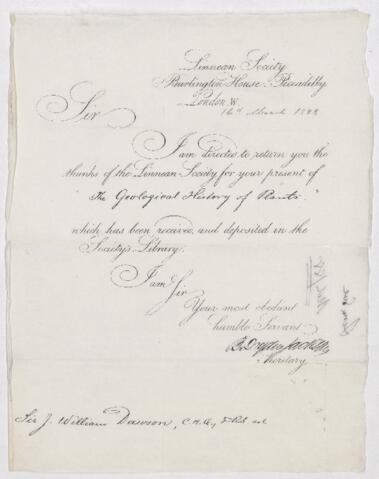 Linnean Society
Burlington House, Piccadilly
London. W.
16th March 1888
Sir
I am directed to return you the
thanks of the Linnean Society for your present of
"The Geological History of Plants."
which has been received, and deposited in the
Society's Library.
I am Sir
Your most obedient
humble Servant
Secretary
Sir J. William Dawson, C.M.G.